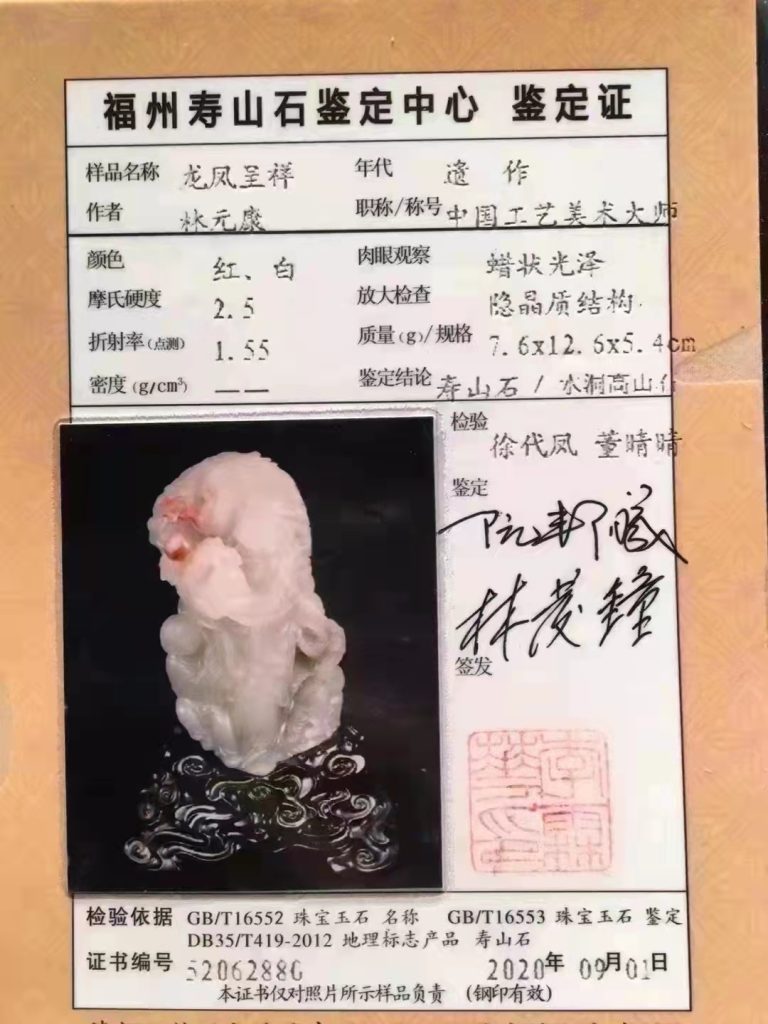 福州寿山石鉴定中心 鉴定证
样品名称 龙凤呈祥 年代 遗 作
作者 林元康 职称/称号 中国工艺美术大师
颜色 红、白 肉眼观察 蜡状光泽
摩氏硬度 2.5 放大检查 隐晶质结构
折射率(点测) 1.55 质量(g)/规格 7.6x12.6x5.4cm
密度(g/cm³) —— 鉴定结论 寿山石 / 水洞高山石
检验 徐代凤 董晴晴
鉴定
林茂鐘
签发
检验依据 GB/T16552 珠宝玉石 名称 GB/T16553 珠宝玉石 鉴定
DB35/T419-2012 地理标志产品 寿山石
证书编号 2020年 09月01日
本证书仅对照片所示样品负责 (钢印有效)